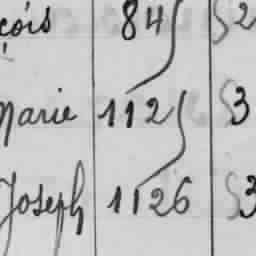 çois 84 52
Marie 112 53
Joseph 1126 53